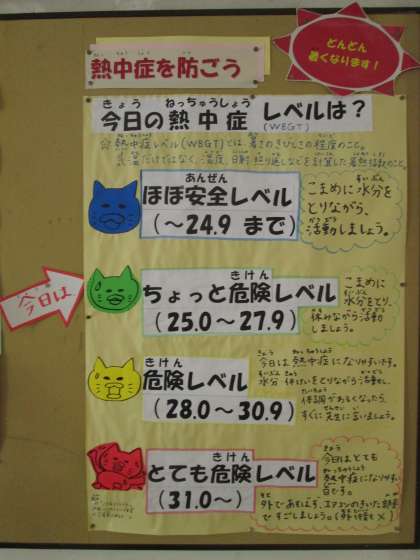 どんどん
暑くなります！
熱中症を防ごう
きょう ねっちゅうしょう
今日の熱中症 レベルは？
(WBGT)
☆熱中症レベル(WBGT)では、暑さのきびしさの程度のこと。
気温だけではなく、湿度、日射、照り返しなどを計算した
あんぜん
ほぼ安全レベル
(～24.9 まで)
こまめに水分を
とりながら、
活動しましょう。
今日は
きけん
ちょっと危険レベル
(25.0～27.9)
こまめに
水分をとり、
休みながら活動
しましょう。
きけん
危険レベル
(28.0～30.9)
今日は熱中症になりやすいです。
水分 休けいをとりながら活動し、
体調がわるくなったら、
すぐに先生に言いましょう。
きけん
とても危険レベル
(31.0～)
今日はとても
熱中症になりやすい
日です。
外であそばず、エアコンのきいた部屋
ですごしましょう。